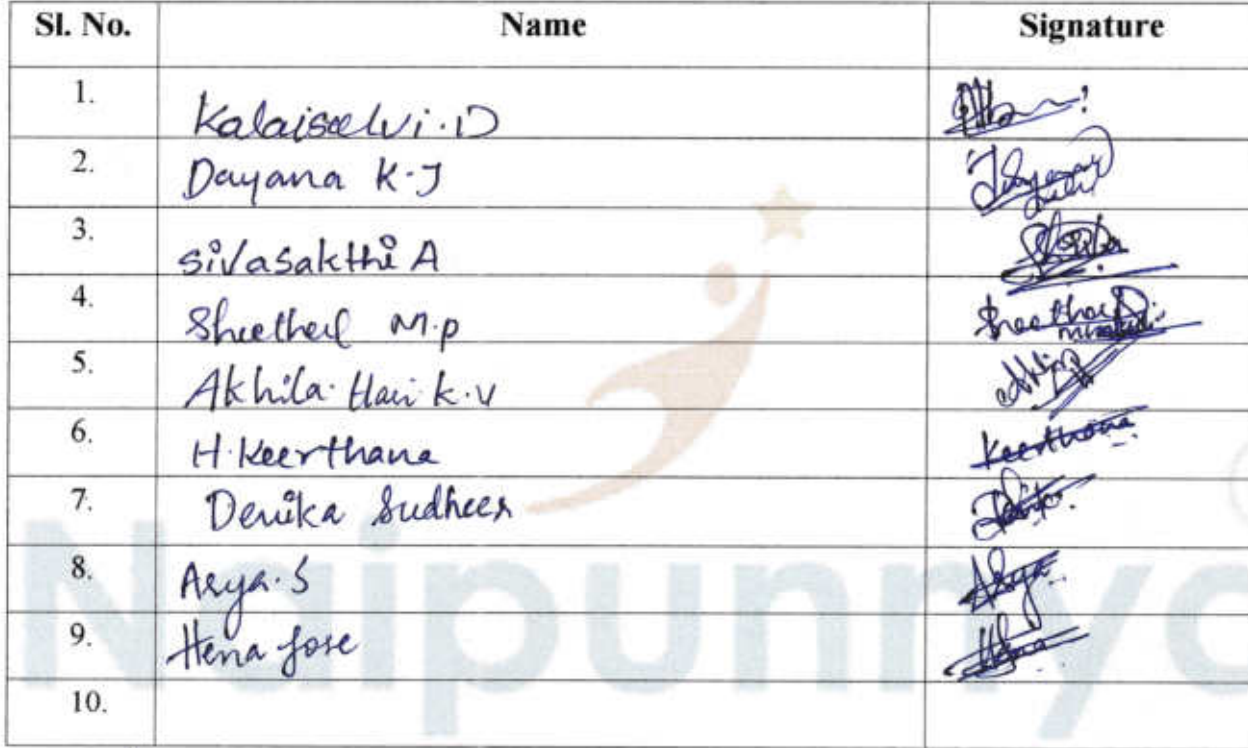 Sl. No. Name Signature
1. Kalaiselvi. D
2. Dayana K.J
3. Sivasakthi A
4. Sheethal M.P Sheethal
5. Akhila Hari K.V Akhila
6. H. Keerthana Keerthana
7. Devika Sudheer
8. Arya. S Arya
9. Hena Jose Hena
10.
Naipunnya